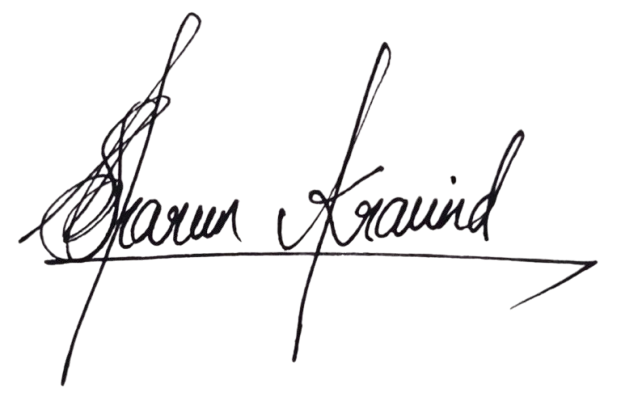 Sharun Aravind